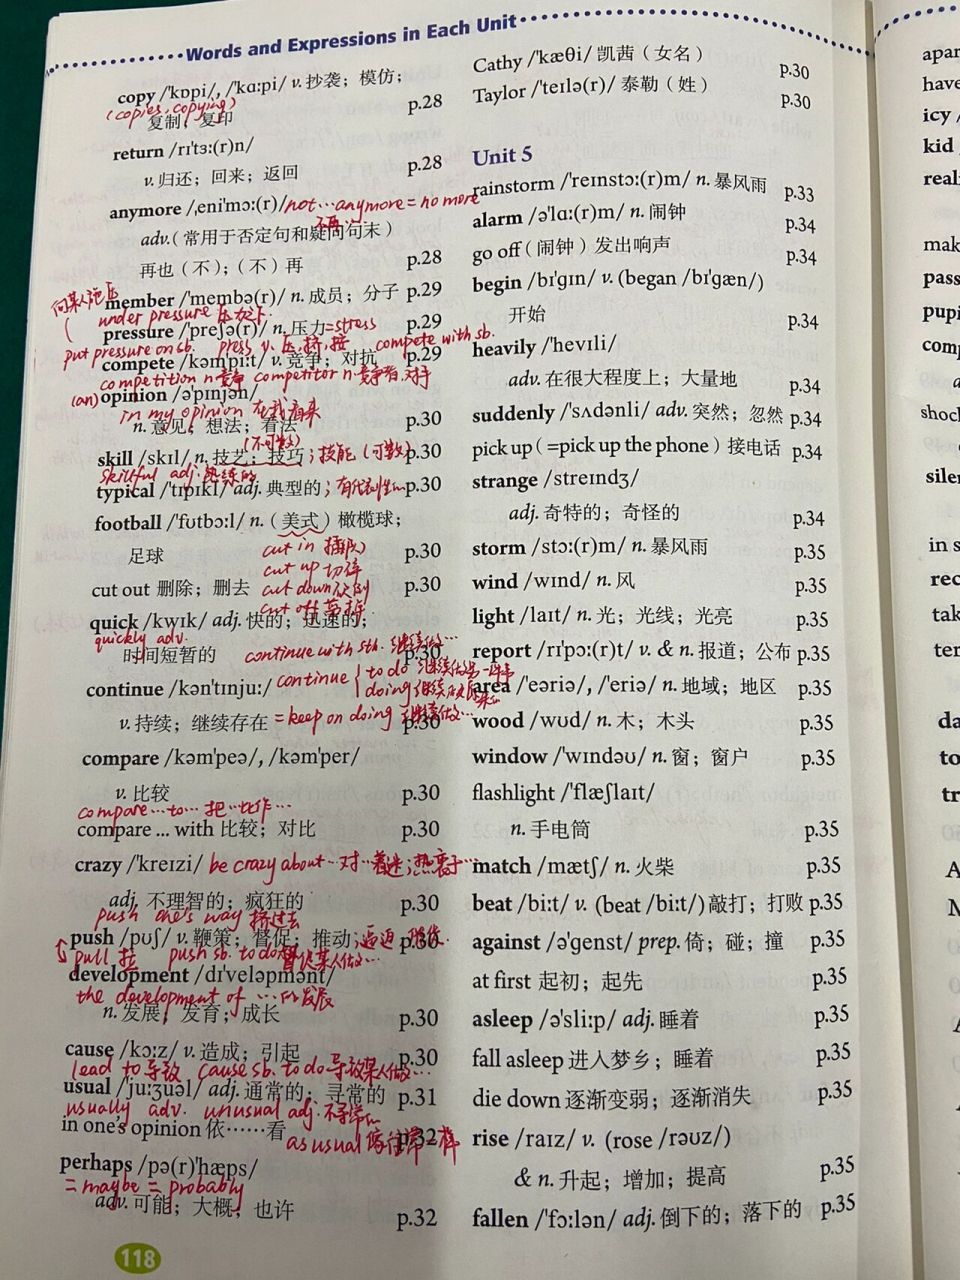 Words and Expressions in Each Unit
copy /'kɒpi/, /'kɑːpi/ v. 抄袭；模仿；
(copies, copying)
复制；复印 p.28
return /rɪ'tɜː(r)n/
v. 归还；回来；返回 p.28
anymore /ˌeni'mɔː(r)/ not…anymore = no more
不再
adv.（常用于否定句和疑问句末）
再也（不）；（不）再 p.28
member /'membə(r)/ n. 成员；分子 p.29
向某人施压
under pressure 压力之下
pressure /'preʃə(r)/ n. 压力 =stress p.29
put pressure on sb. press v. 压,挤,按 compete with sb.
compete /kəm'piːt/ v. 竞争；对抗 p.29
competition n 竞争 competitor n. 竞争者,对手
(an) opinion /ə'pɪnjən/
in my opinion 在我看来
n. 意见；想法；看法 p.30
(不可数)
skill /skɪl/ n. 技艺；技巧；技能 (可数) p.30
skillful adj. 熟练的
typical /'tɪpɪkl/ adj. 典型的；有代表性 p.30
football /'fʊtbɔːl/ n.（美式）橄榄球；
足球 p.30
cut in 插队
cut up 切碎
cut out 删除；删去 cut down 砍倒 p.30
cut off
quick /kwɪk/ adj. 快的；迅速的；
quickly adv.
时间短暂的 p.30
continue with sth. 继续做…
continue /kən'tɪnjuː/ continue { to do 继续做另一件事
doing 继续做原来
v. 持续；继续存在 = keep on doing 继续做… p.30
compare /kəm'peə/, /kəm'per/
v. 比较 p.30
compare…to… 把…比作…
compare ... with 比较；对比 p.30
crazy /'kreɪzi/ be crazy about…对…着迷；热衷于…
adj. 不理智的；疯狂的 p.30
push one's way 挤过去
push /pʊʃ/ v. 鞭策；督促；推动； p.30
pull 拉 push sb. to do sth 督促某人做…
development /dɪ'veləpmənt/
the development of …的发展
n. 发展；发育；成长 p.30
cause /kɔːz/ v. 造成；引起 p.30
lead to 导致 cause sb. to do 导致某人做…
usual /'juːʒuəl/ adj. 通常的；寻常的 p.31
usually adv. unusual adj. 不寻常
in one's opinion 依……看 p.32
as usual 像往常一样
perhaps /pə(r)'hæps/
= maybe = probably
adv. 可能；大概；也许 p.32
118
Cathy /'kæθi/ 凯茜（女名） p.30
Taylor /'teɪlə(r)/ 泰勒（姓） p.30
Unit 5
rainstorm /'reɪnstɔː(r)m/ n. 暴风雨 p.33
alarm /ə'lɑː(r)m/ n. 闹钟 p.34
go off（闹钟）发出响声 p.34
begin /bɪ'gɪn/ v. (began /bɪ'gæn/)
开始 p.34
heavily /'hevɪli/
adv. 在很大程度上；大量地 p.34
suddenly /'sʌdənli/ adv. 突然；忽然 p.34
pick up（=pick up the phone）接电话 p.34
strange /streɪndʒ/
adj. 奇特的；奇怪的 p.34
storm /stɔː(r)m/ n. 暴风雨 p.35
wind /wɪnd/ n. 风 p.35
light /laɪt/ n. 光；光线；光亮 p.35
report /rɪ'pɔː(r)t/ v. & n. 报道；公布 p.35
area /'eəriə/, /'eriə/ n. 地域；地区 p.35
wood /wʊd/ n. 木；木头 p.35
window /'wɪndəʊ/ n. 窗；窗户 p.35
flashlight /'flæʃlaɪt/
n. 手电筒 p.35
match /mætʃ/ n. 火柴 p.35
beat /biːt/ v. (beat /biːt/) 敲打；打败 p.35
against /ə'genst/ prep. 倚；碰；撞 p.35
at first 起初；起先 p.35
asleep /ə'sliːp/ adj. 睡着 p.35
fall asleep 进入梦乡；睡着 p.35
die down 逐渐变弱；逐渐消失 p.35
rise /raɪz/ v. (rose /rəʊz/)
& n. 升起；增加；提高 p.35
fallen /'fɔːlən/ adj. 倒下的；落下的 p.35
have
icy
kid